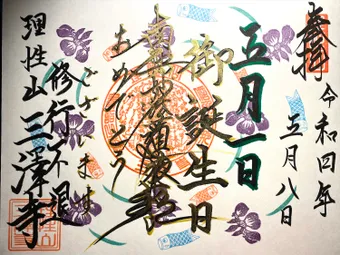 奉拝
令和四年
五月八日
五月一日
御誕生日
おめでとう
ございます
修行不退
理性山三澤寺